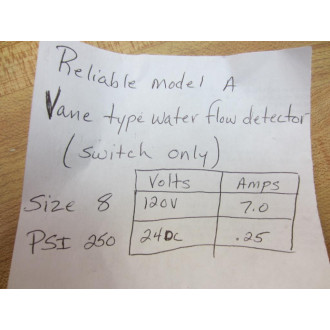 Reliable model A
Vane type water flow detector
(switch only)
Volts Amps
Size 8 120V 7.0
PSI 250 24DC .25